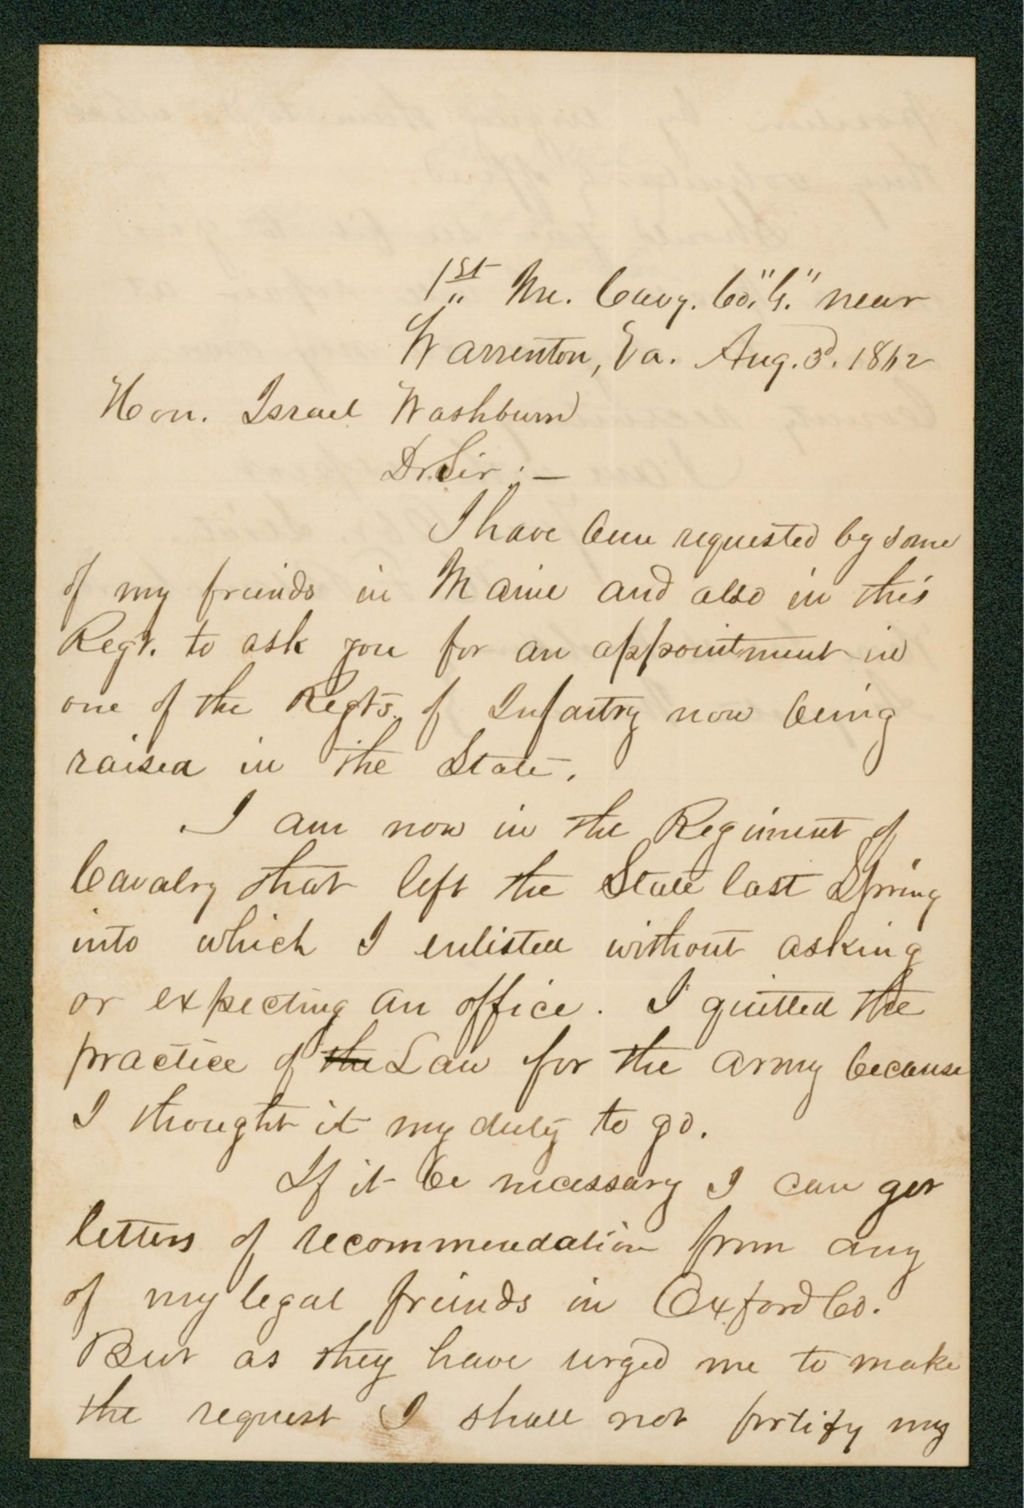 1st Me. Cavy. Co. "G." near
Warrenton, Va. Aug. 3d. 1862
Hon. Israel Washburn
Dr. Sir : —
I have been requested by some
of my friends in Maine and also in this
Regt. to ask you for an appointment in
one of the Regts. of Infantry now being
raised in the State.
I am now in the Regiment of
Cavalry that left the State last Spring
into which I enlisted without asking
or expecting an office. I quitted the
practice of the Law for the army because
I thought it my duty to go.
If it be necessary I can get
letters of recommendation from any
of my legal friends in Oxford Co.
But as they have urged me to make
the request I shall not fortify my